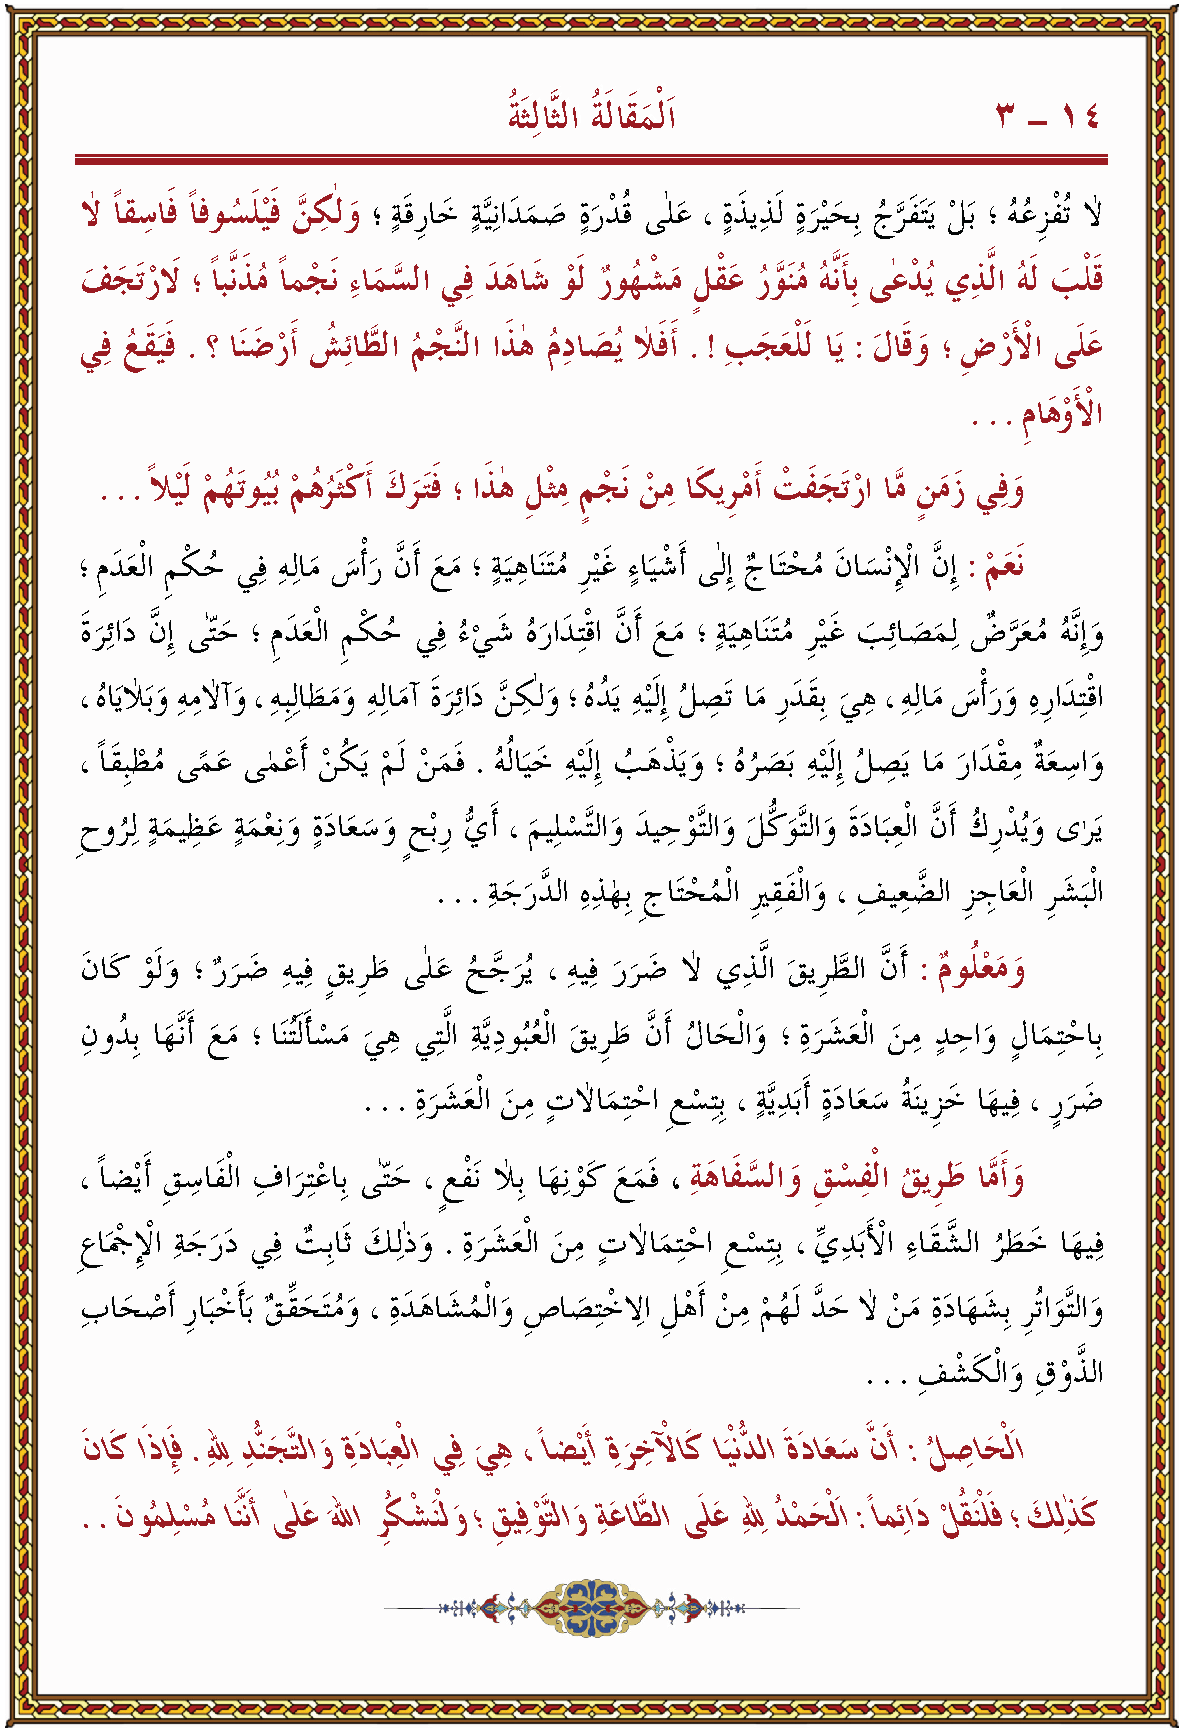 ١٤ – ٣ اَلْمَقَالَةُ الثَّالِثَةُ
لَا تُفْزِعُهُ ؛ بَلْ يَتَفَرَّجُ بِحَيْرَةٍ لَذِيذَةٍ ، عَلٰى قُدْرَةٍ صَمَدَانِيَّةٍ خَارِقَةٍ ؛ وَلٰكِنَّ فَيْلَسُوفاً فَاسِقاً لَا
قَلْبَ لَهُ الَّذِي يُدْعٰى بِأَنَّهُ مُنَوَّرُ عَقْلٍ مَشْهُورٌ لَوْ شَاهَدَ فِي السَّمَاءِ نَجْماً مُذَنَّباً ؛ لَارْتَجَفَ
عَلَى الْأَرْضِ ؛ وَقَالَ : يَا لَلْعَجَبِ ! . أَفَلَا يُصَادِمُ هٰذَا النَّجْمُ الطَّائِشُ أَرْضَنَا ؟ . فَيَقَعُ فِي
الْأَوْهَامِ . . .
وَفِي زَمَنٍ مَّا ارْتَجَفَتْ أَمْرِيكَا مِنْ نَجْمٍ مِثْلِ هٰذَا ؛ فَتَرَكَ أَكْثَرُهُمْ بُيُوتَهُمْ لَيْلاً . . .
نَعَمْ : إِنَّ الْإِنْسَانَ مُحْتَاجٌ إِلٰى أَشْيَاءٍ غَيْرِ مُتَنَاهِيَةٍ ؛ مَعَ أَنَّ رَأْسَ مَالِهِ فِي حُكْمِ الْعَدَمِ ؛
وَإِنَّهُ مُعَرَّضٌ لِمَصَائِبَ غَيْرِ مُتَنَاهِيَةٍ ؛ مَعَ أَنَّ اقْتِدَارَهُ شَيْءٌ فِي حُكْمِ الْعَدَمِ ؛ حَتّٰى إِنَّ دَائِرَةَ
اقْتِدَارِهِ وَرَأْسَ مَالِهِ ، هِيَ بِقَدَرِ مَا تَصِلُ إِلَيْهِ يَدُهُ ؛ وَلٰكِنَّ دَائِرَةَ آمَالِهِ وَمَطَالِبِهِ ، وَآلَامِهِ وَبَلَايَاهُ ،
وَاسِعَةٌ مِقْدَارَ مَا يَصِلُ إِلَيْهِ بَصَرُهُ ؛ وَيَذْهَبُ إِلَيْهِ خَيَالُهُ . فَمَنْ لَمْ يَكُنْ أَعْمٰى عَمًى مُطْبِقاً ،
يَرٰى وَيُدْرِكُ أَنَّ الْعِبَادَةَ وَالتَّوَكُّلَ وَالتَّوْحِيدَ وَالتَّسْلِيمَ ، أَيُّ رِبْحٍ وَسَعَادَةٍ وَنِعْمَةٍ عَظِيمَةٍ لِرُوحِ
الْبَشَرِ الْعَاجِزِ الضَّعِيفِ ، وَالْفَقِيرِ الْمُحْتَاجِ بِهٰذِهِ الدَّرَجَةِ . . .
وَمَعْلُومٌ : أَنَّ الطَّرِيقَ الَّذِي لَا ضَرَرَ فِيهِ ، يُرَجَّحُ عَلٰى طَرِيقٍ فِيهِ ضَرَرٌ ؛ وَلَوْ كَانَ
بِاحْتِمَالٍ وَاحِدٍ مِنَ الْعَشَرَةِ ؛ وَالْحَالُ أَنَّ طَرِيقَ الْعُبُودِيَّةِ الَّتِي هِيَ مَسْأَلَتُنَا ؛ مَعَ أَنَّهَا بِدُونِ
ضَرَرٍ ، فِيهَا خَزِينَةُ سَعَادَةٍ أَبَدِيَّةٍ ، بِتِسْعِ احْتِمَالَاتٍ مِنَ الْعَشَرَةِ . . .
وَأَمَّا طَرِيقُ الْفِسْقِ وَالسَّفَاهَةِ ، فَمَعَ كَوْنِهَا بِلَا نَفْعٍ ، حَتّٰى بِاعْتِرَافِ الْفَاسِقِ أَيْضاً ،
فِيهَا خَطَرُ الشَّقَاءِ الْأَبَدِيِّ ، بِتِسْعِ احْتِمَالَاتٍ مِنَ الْعَشَرَةِ . وَذٰلِكَ ثَابِتٌ فِي دَرَجَةِ الْإِجْمَاعِ
وَالتَّوَاتُرِ بِشَهَادَةِ مَنْ لَا حَدَّ لَهُمْ مِنْ أَهْلِ الِاخْتِصَاصِ وَالْمُشَاهَدَةِ ، وَمُتَحَقِّقٌ بَأَخْبَارِ أَصْحَابِ
الذَّوْقِ وَالْكَشْفِ . . .
اَلْحَاصِلُ : أَنَّ سَعَادَةَ الدُّنْيَا كَالْآخِرَةِ أَيْضاً ، هِيَ فِي الْعِبَادَةِ وَالتَّجَنُّدِ لِلّٰهِ . فَإِذَا كَانَ
كَذٰلِكَ ؛ فَلْنَقُلْ دَائِماً : اَلْحَمْدُ لِلّٰهِ عَلَى الطَّاعَةِ وَالتَّوْفِيقِ ؛ وَلْنَشْكُرِ اللهَ عَلٰى أَنَّنَا مُسْلِمُونَ . .